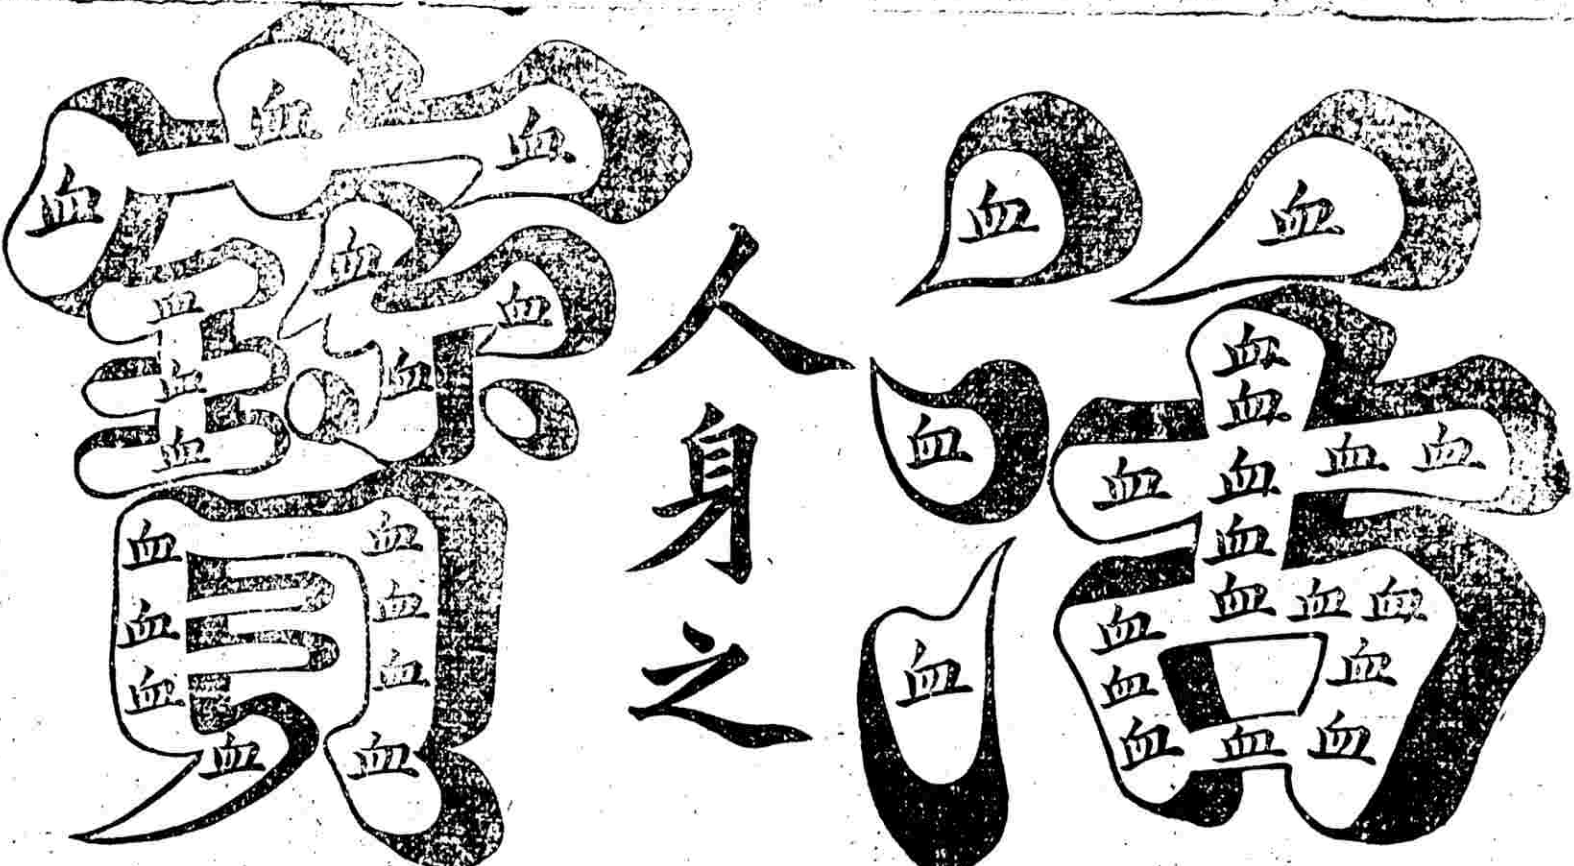 活
血血血血血血血血血血血血血血血血血血血血
人身之
寶
血血血血血血血血血血血血血血血血血